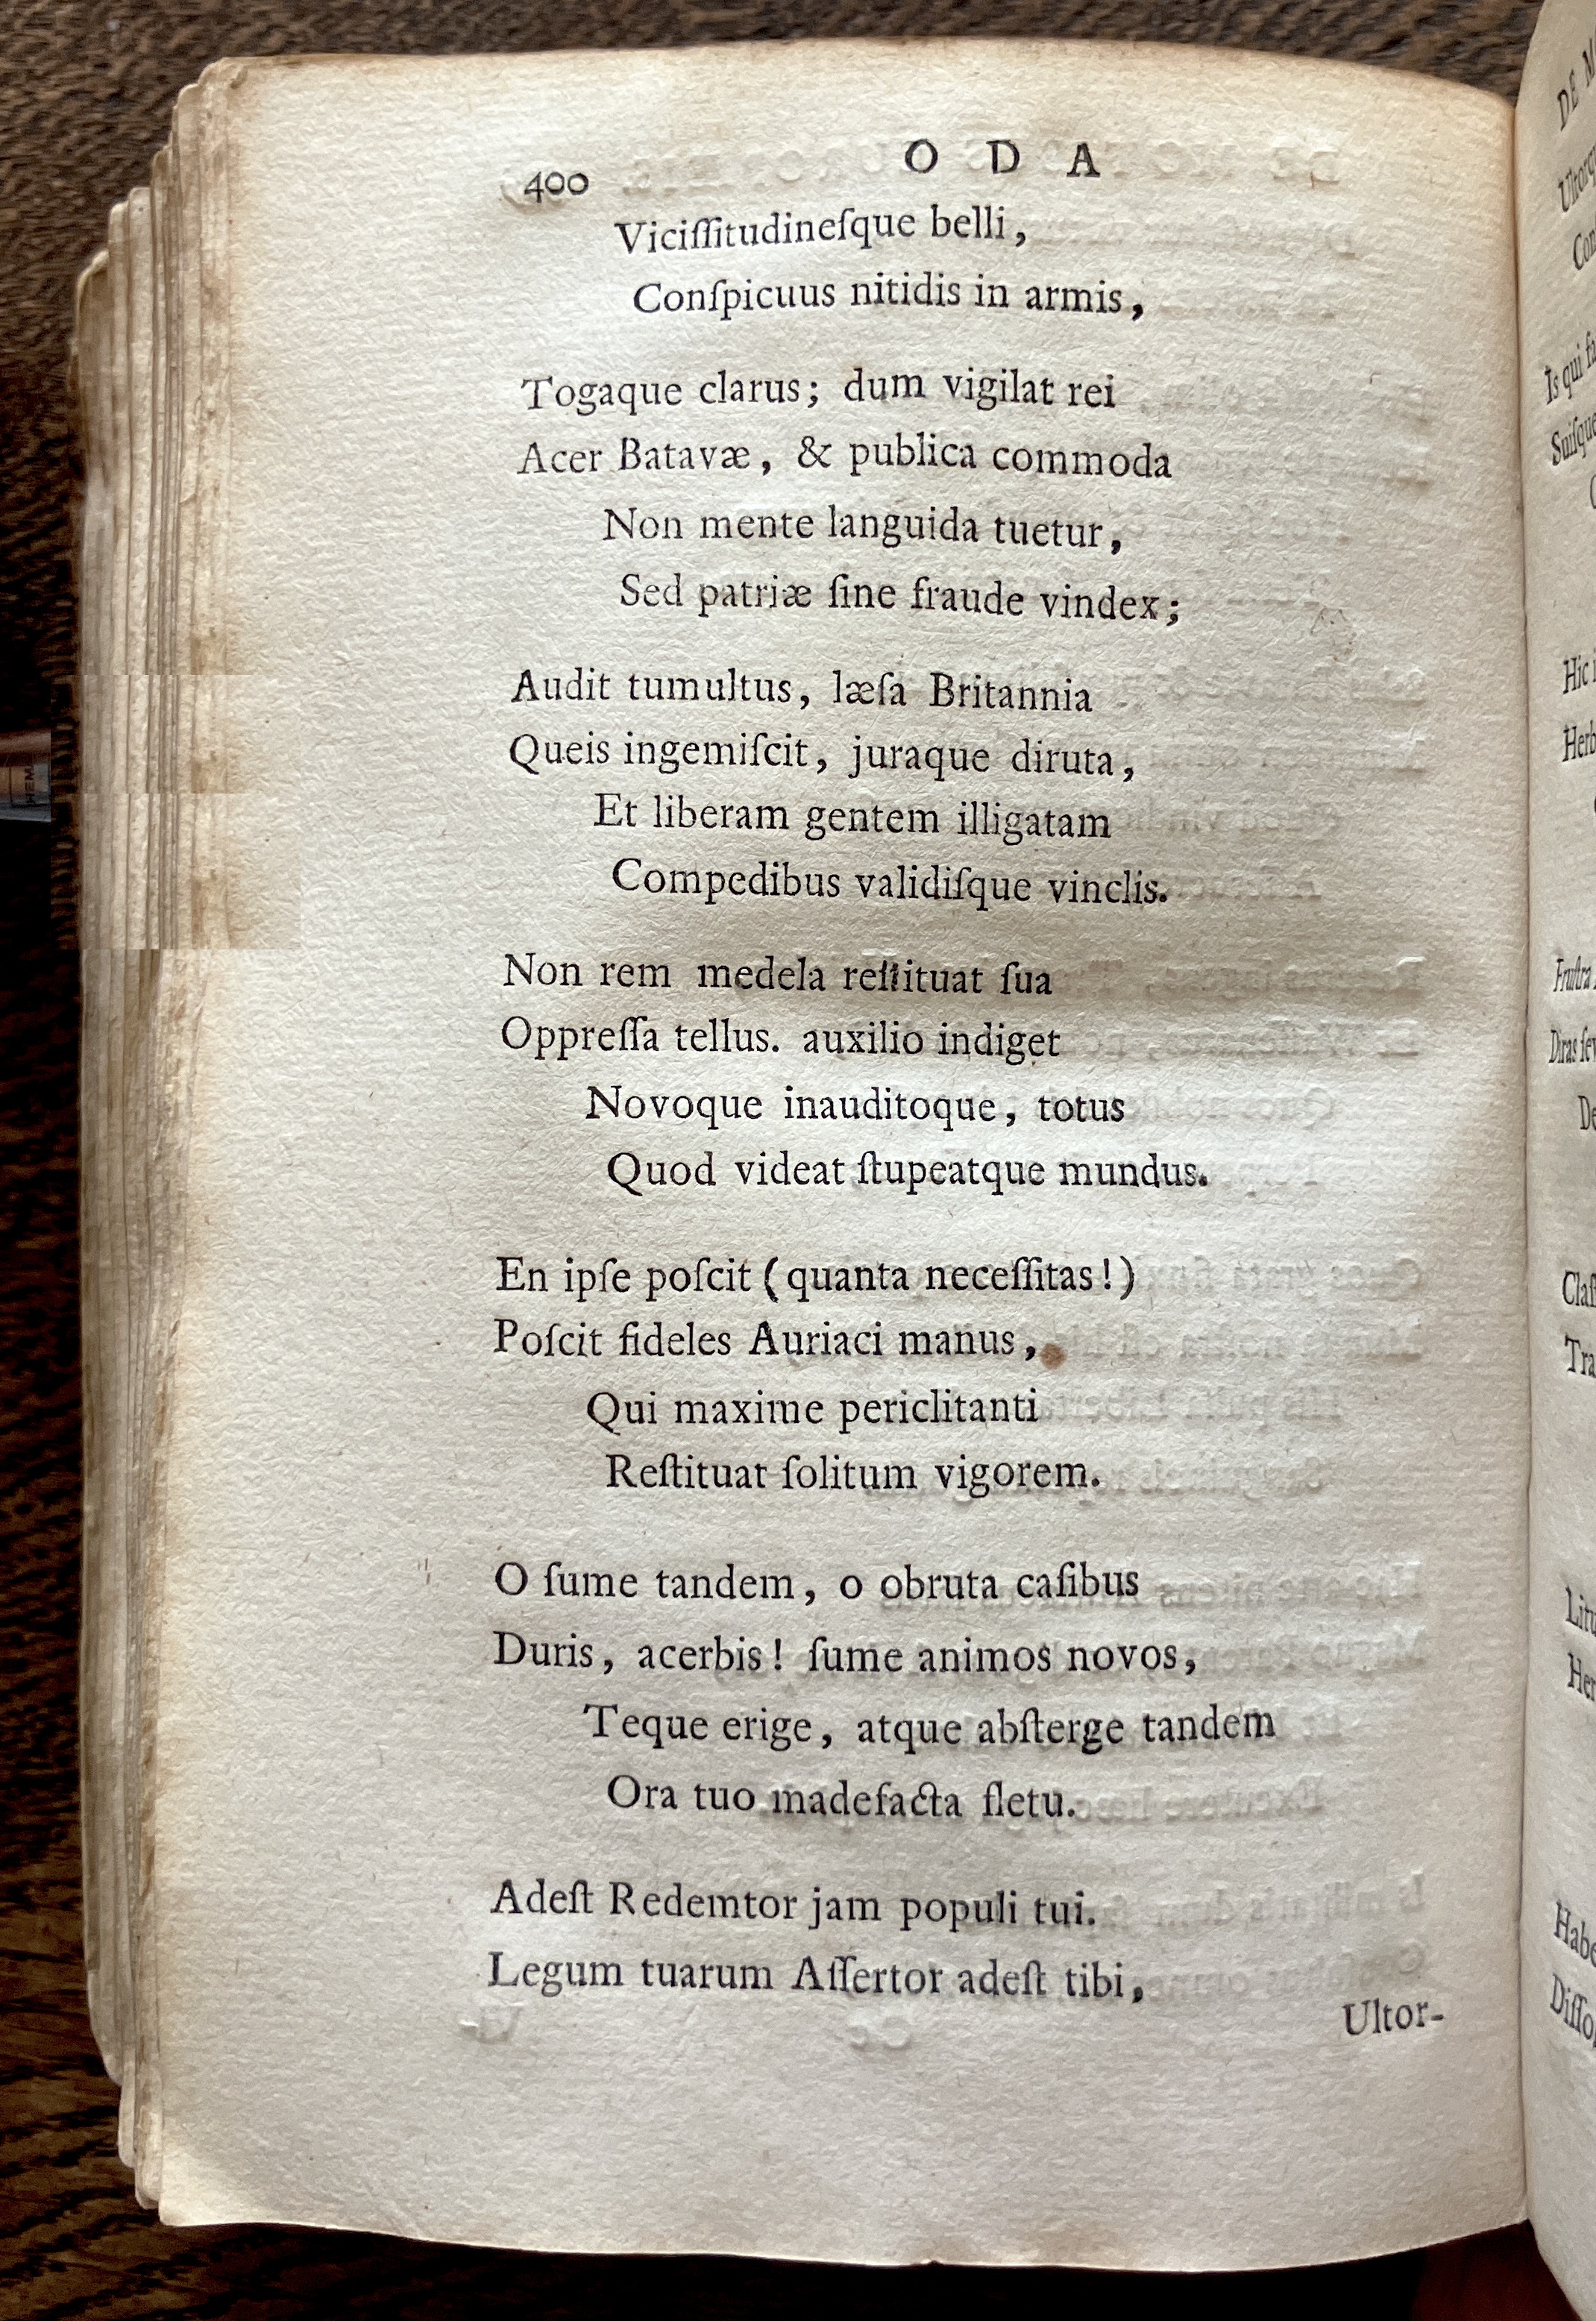 400
O D A
Viciſſitudineſque belli,
Conſpicuus nitidis in armis,
Togaque clarus; dum vigilat rei
Acer Batavæ, & publica commoda
Non mente languida tuetur,
Sed patriæ ſine fraude vindex;
Audit tumultus, læſa Britannia
Queis ingemiſcit, juraque diruta,
Et liberam gentem illigatam
Compedibus validiſque vinclis.
Non rem medela reſtituat ſua
Oppreſſa tellus. auxilio indiget
Novoque inauditoque, totus
Quod videat ſtupeatque mundus.
En ipſe poſcit (quanta neceſſitas!)
Poſcit fideles Auriaci manus,
Qui maxime periclitanti
Reſtituat ſolitum vigorem.
O ſume tandem, o obruta caſibus
Duris, acerbis! ſume animos novos,
Teque erige, atque abſterge tandem
Ora tuo madefacta fletu.
Adeſt Redemtor jam populi tui.
Legum tuarum Aſſertor adeſt tibi,
Ultor-
DE
Is qui
Hic